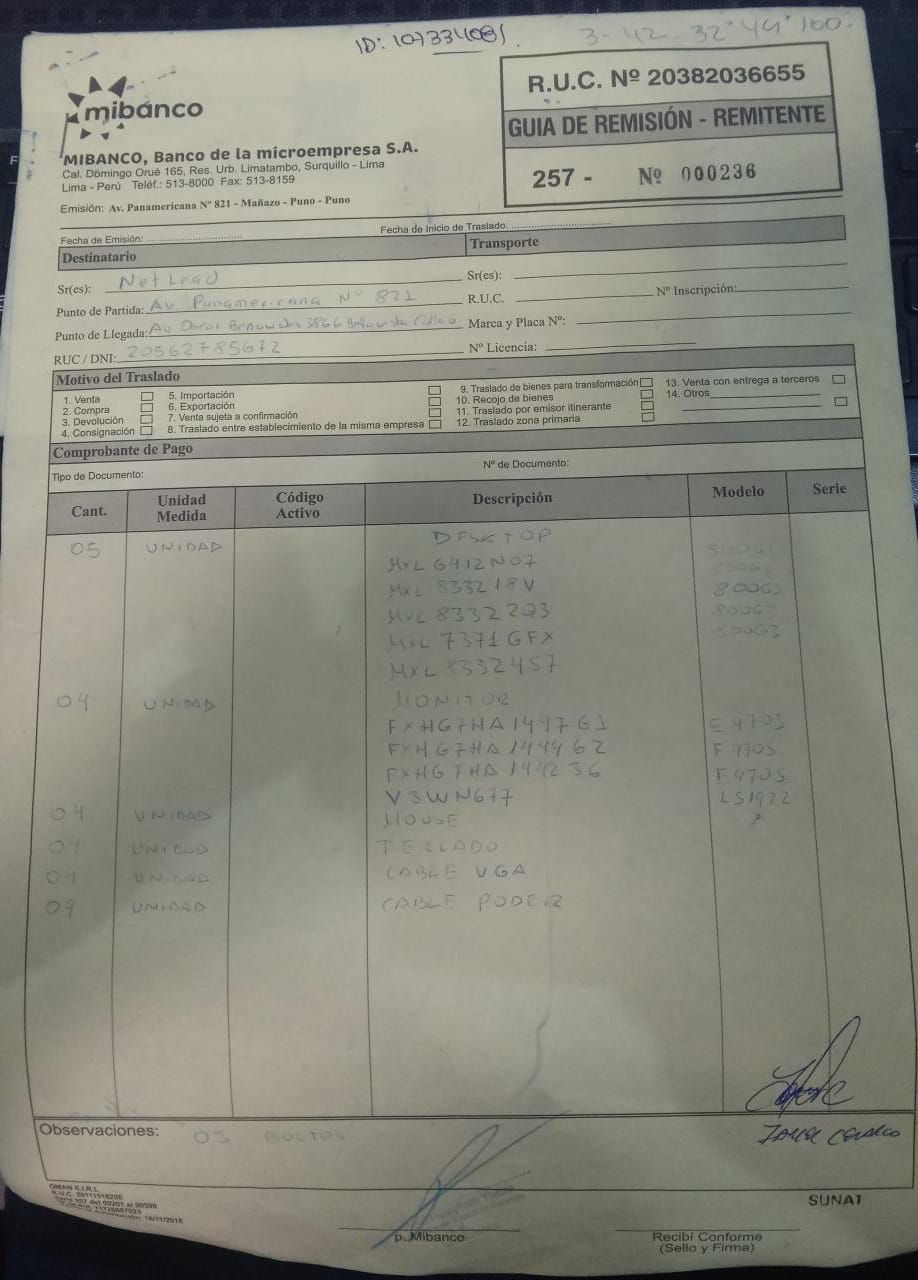 ID: 107334081.
3- 42- 32° 49° 100.
mibanco
R.U.C. Nº 20382036655
GUIA DE REMISIÓN - REMITENTE
257 - Nº 000236
MIBANCO, Banco de la microempresa S.A.
Cal. Domingo Orué 165, Res. Urb. Limatambo, Surquillo - Lima
Lima - Perú Teléf.: 513-8000 Fax: 513-8159
Emisión: Av. Panamericana Nº 821 - Mañazo - Puno - Puno
Fecha de Emisión: Fecha de Inicio de Traslado:
Destinatario Transporte
Sr(es): NetLead Sr(es):
Punto de Partida: Av Panamericana Nº 821 R.U.C. Nº Inscripción:
Punto de Llegada: Av Oscar Benavides 3866 Bellavista Callao Marca y Placa Nº:
RUC / DNI: 20562785672 Nº Licencia:
Motivo del Traslado
1. Venta 5. Importación 9. Traslado de bienes para transformación 13. Venta con entrega a terceros
2. Compra 6. Exportación 10. Recojo de bienes 14. Otros
3. Devolución 7. Venta sujeta a confirmación 11. Traslado por emisor itinerante
4. Consignación 8. Traslado entre establecimiento de la misma empresa 12. Traslado zona primaria
Comprobante de Pago
Tipo de Documento: Nº de Documento:
Cant. Unidad Medida Código Activo Descripción Modelo Serie
05 UNIDAD DESKTOP
MXL6412N07 800G1
MXL 833218V 800G3
MXL 8332 2Q3 800G3
MXL 7371GFX 800G3
MXL8332457
04 UNIDAD MONITOR
FXHG7HA144761 E970S
FXHG7HA144962 F970S
FXHG7HA144236 F970S
V3WN677 LS1922
04 UNIDAD MOUSE
UNIDAD TECLADO
04 UNIDAD CABLE VGA
09 UNIDAD CABLE PODER
Observaciones: 03 BULTOS
OMAN E.I.R.L.
SUNAT
p. Mibanco
Recibí Conforme
(Sello y Firma)